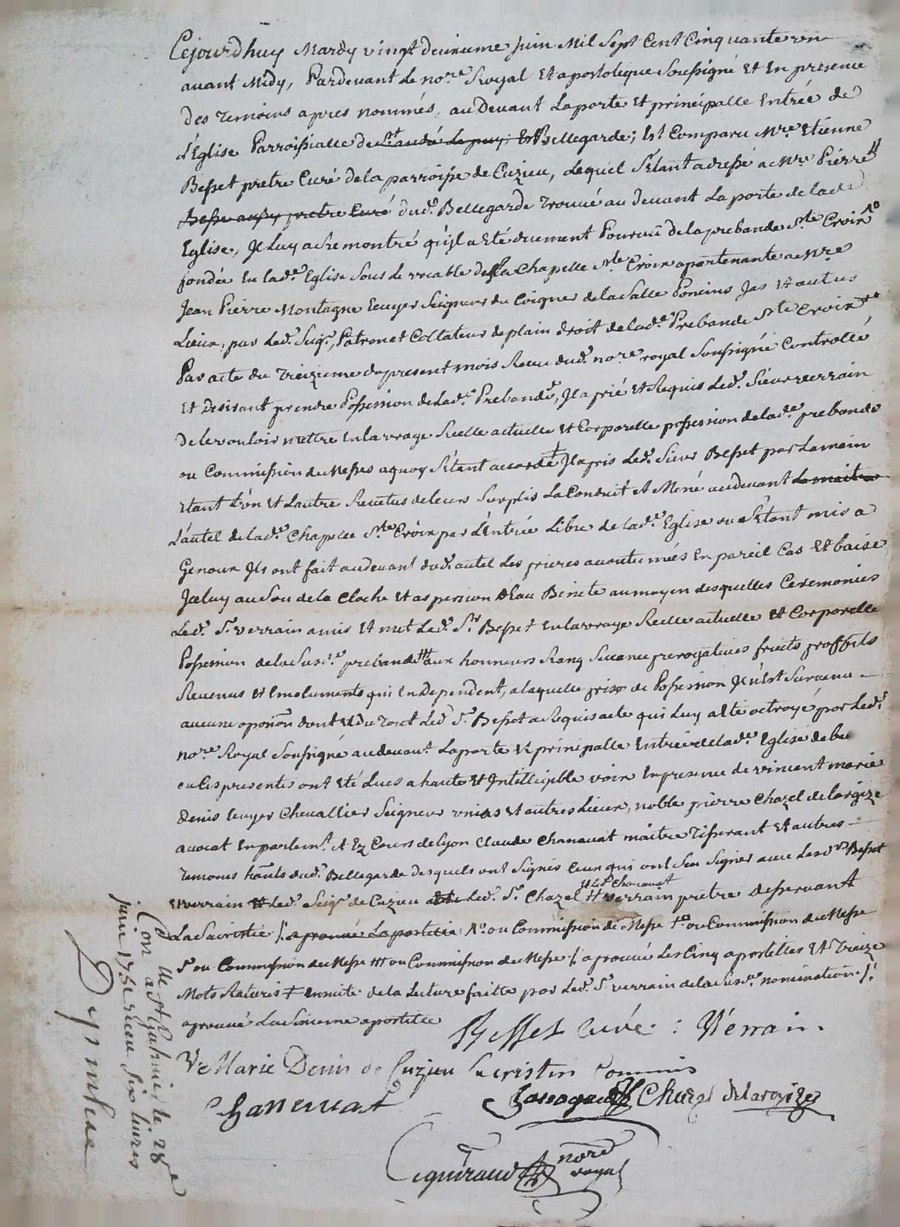 Cejourdhuy Mardy vingt deuxieme Juin Mil Sept Cent Cinquante
avant Midy, Pardevant Le nore Royal Et apostolique Soussigné Et En presence
des Temoins apres nommés, au Devant La porte Et principalle Entrée de
L'Eglise Parroissialle de St andré Le puy Bellegarde; Est Comparu Mre Etienne
Besset pretre Curé de la parroisse de Cuzieu, Lequel S'étant adressé a Mre Pierre
Besse aussy pretre Curé dud. Bellegarde Trouvé au Devant La porte de lade
Eglise, Il Luy a remontré qu'il a Eté dument Pourvû de la prebande Ste Croix
fondée En lade Eglise Sous le vocable de la Chapelle Ste Croix apartenante a Mre
Jean Pierre Montagne Ecuyer Seigneur de Poncins Jas Et autres
Lieux, par Led. Seigr, Patron et Collateur de plain droit de lade Prebande Ste Croix
Par acte du Treizieme du present mois Recu dud. nore royal Soussigné Controllé
Et Desirant prendre Possession de Lade Prebande, Il a prié Et Requis Led. Sieur verrain
de le vouloir mettre En la vraye Reelle actuelle Et Corporelle possession de lade prebande
ou Commission de Messes a quoy S'étant accordé Il a pris Led. Sieur Besset par La main
Etant L'un Et L'autre Revetus de leurs Surplis La Conduit Et Mené au devant Le maitre
L'autel de lade Chapelle Ste Croix par L'Entrée Libre de lade Eglise ou S'Etant mis a
Genoux Ils ont fait au devant dud. autel Les prieres acoutumées En pareil Cas Et baisé
Jceluy au Son de la Cloche Et aspersion d'Eau Benite au moyen desquelles Ceremonies
Led. Sr. verrain a mis Et met Led. Sr. Besset En la vraye Reelle actuelle Et Corporelle
Possession de la Susde prebande aux honneurs Rang Seance prerogatives fruits proffits
Revenus Et Emoluments qui En dependent, a laquelle prise de Possession Il n'est Survenu
aucune oposion dont Et Du Tout Led. Sr. Besset a Requis acte qui Luy a Eté octroyé par Led.
nore Royal Soussigné au devant La porte Et principalle Entrée de lade Eglise
ou Les presentes ont Eté Lues a haute Et Intelligible voix En presence de vincent marie
Denis Ecuyer Chevallier Seigneur Et autres Lieux, noble pierre Chazel de
avocat En parlemt. Et Ez Cours de Lyon Claude Chanavat maitre Tisserant Et autres
Temoins hants dud. Bellegarde Desquels ont Signés Ceux qui ont Sçu Signer avec Lesd. Srs Besset
Et verrain Et Led. Seigr de Cuzieu Led. Sr. Chazel Et Led. Chanavat verrain pretre desservant
La Sacristie aprouvé La postille ou Commission de Messe ou Commission de Messe
ou Commission de Messe ou Commission de Messe aprouvé Les Cinq apostilles Et Treize
Mots Raturés Ensuite de la Lecture faitte par Led. Sr. verrain de la Susde nomination
aprouvé La Sixieme apostille
Besset curé : Verrain.
Ve Marie Denis de Cuzieu Sacristin Commis
Chanevat Chazel
nore royal
Con. a St Galmier le 28e
juin 175 Recu Six livres